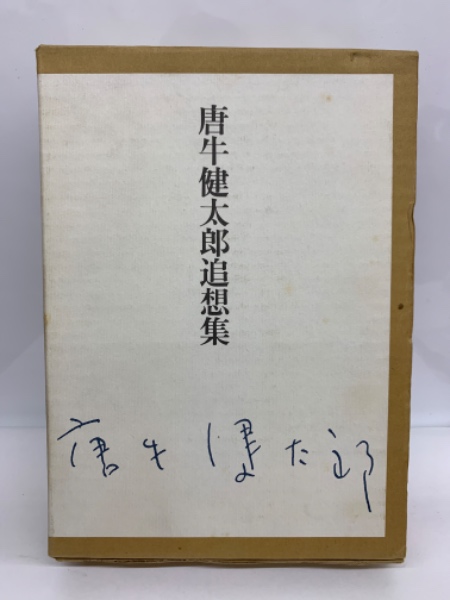 唐牛健太郎追想集
唐牛健太郎